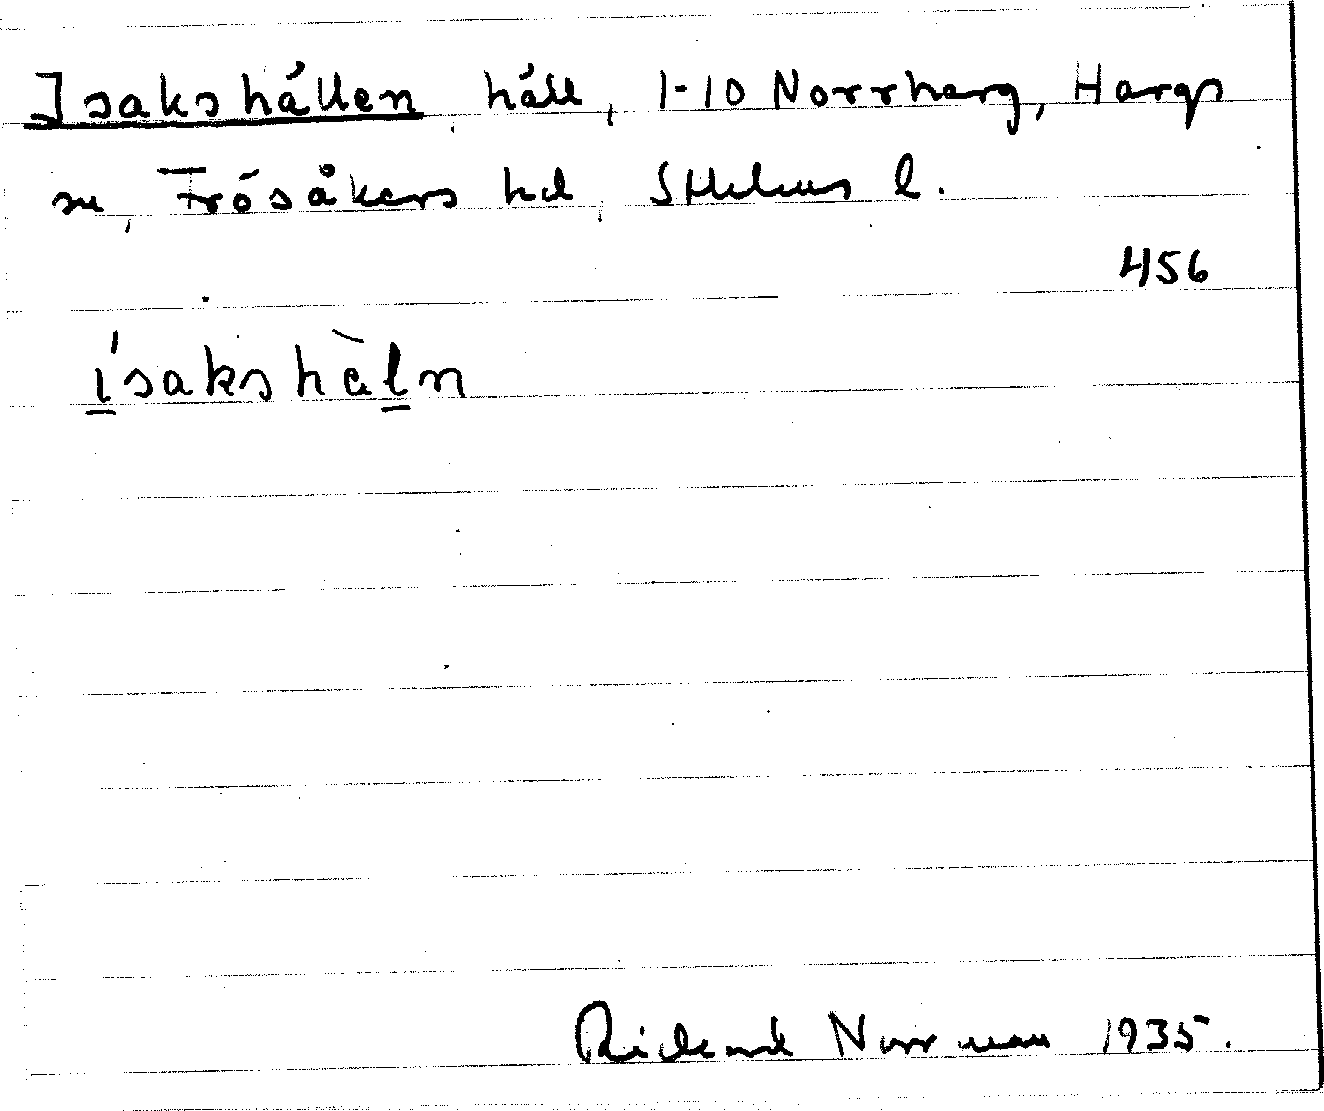 Isakshällen häll, 1-10 Norrharg, Hargs
sn, Frösåkers hd, Sthlms l.
456
ísakshàln
Rickard Norrman 1935.